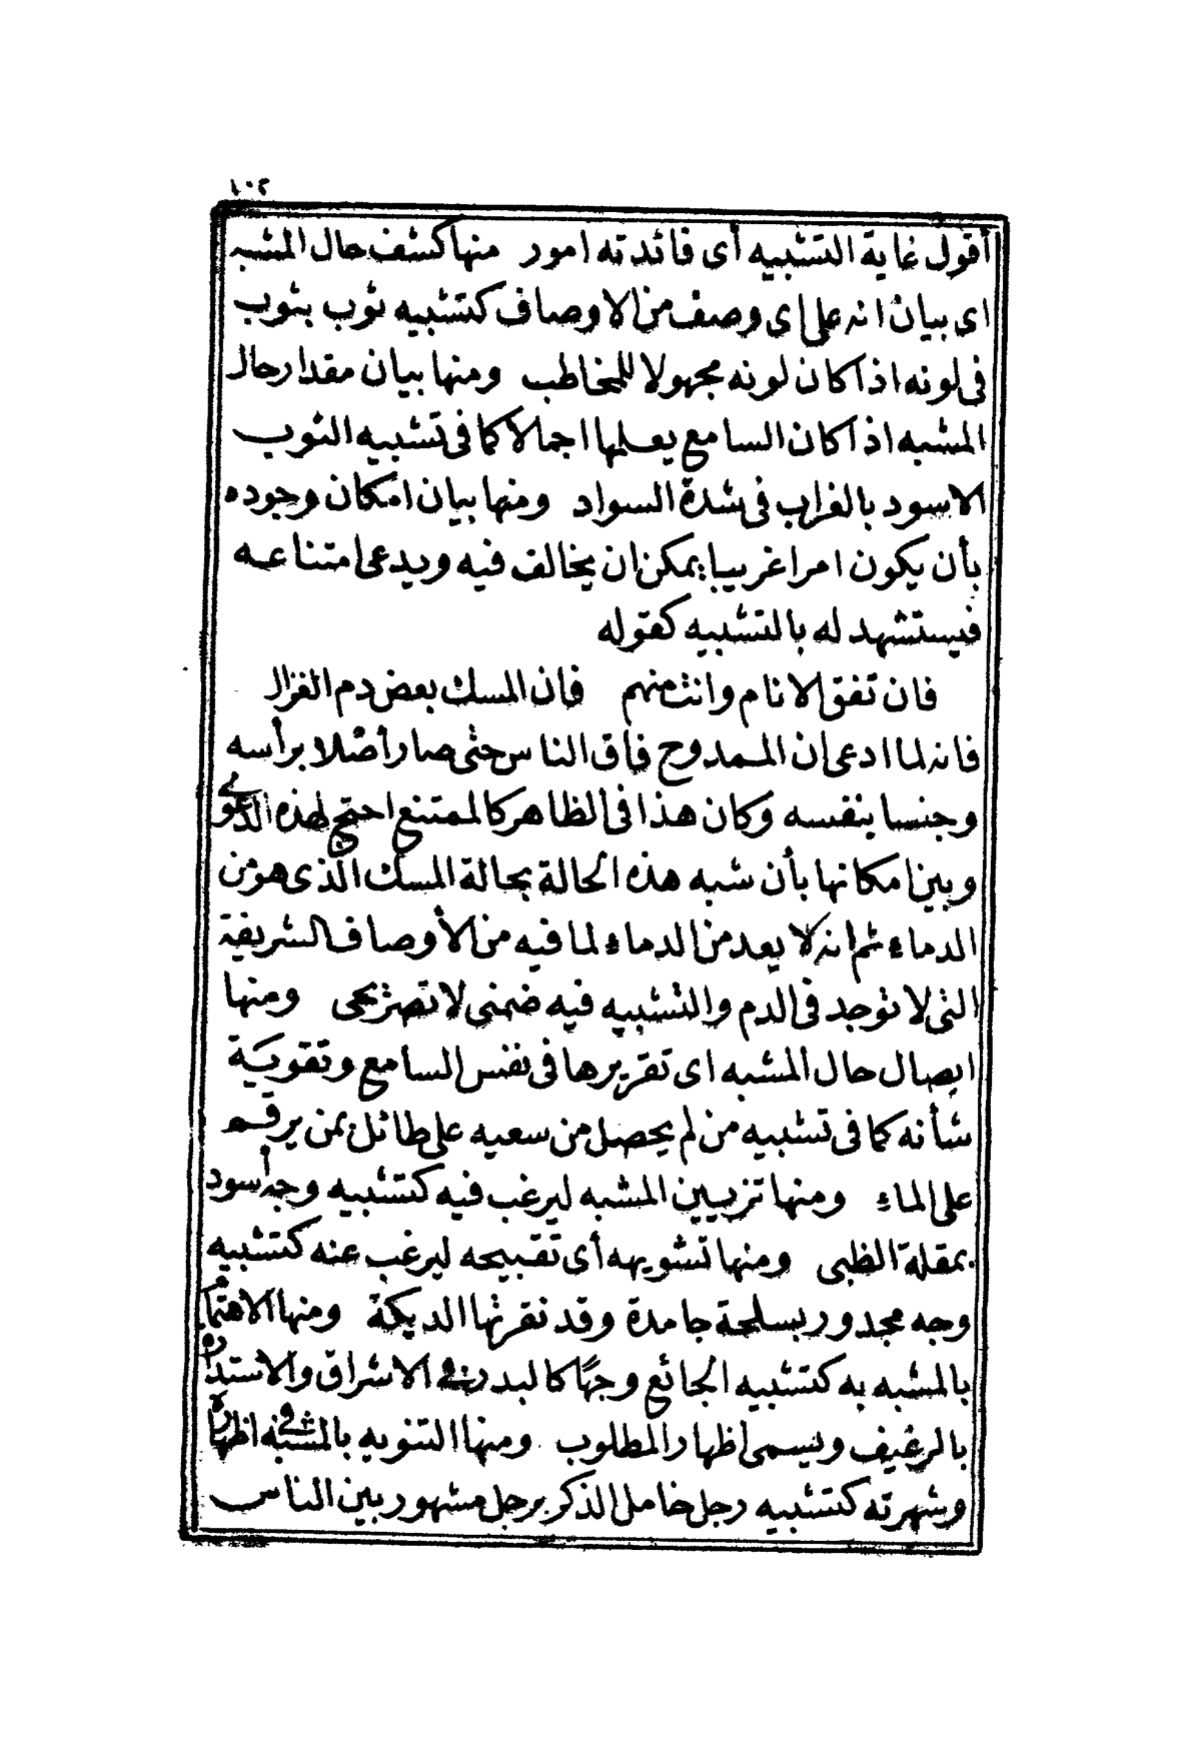 ١٠٢
أقول غاية التشبيه أى فائدته امور منها كشف حال المشبه
اى بيان انه على اى وصف من الاوصاف كتشبيه ثوب بثوب
فى لونه اذا كان لونه مجهولا للمخاطب ومنها بيان مقدار حال
المشبه اذا كان السامع يعلمها اجمالا كما فى تشبيه الثوب
الاسود بالغراب فى شدة السواد ومنها بيان امكان وجوده
بأن يكون امرا غريبا يمكن ان يخالف فيه ويدعى امتناعه
فيستشهد له بالتشبيه كقوله
فان تفق الانام وانت منهم فان المسك بعض دم الغزال
فانه لما ادعى ان الممدوح فاق الناس حتى صار أصلا برأسه
وجنسا بنفسه وكان هذا فى الظاهر كالممتنع احتج لهذه الدعوى
وبين امكانها بأن شبه هذه الحالة بحالة المسك الذى هو من
الدماء ثم انه لا يعد من الدماء لما فيه من الأوصاف الشريفة
التى لا توجد فى الدم والتشبيه فيه ضمنى لا تصريحى ومنها
ايصال حال المشبه اى تقريرها فى نفس السامع وتقوية
شأنه كما فى تشبيه من لم يحصل من سعيه على طائل بمن يرقم
على الماء ومنها تزيين المشبه ليرغب فيه كتشبيه وجه أسود
بمقلة الظبى ومنها تشويهه أى تقبيحه ليرغب عنه كتشبيه
وجه مجدور بسلحة جامدة وقد نقرتها الديكة ومنها الاهتمام
بالمشبه به كتشبيه الجائع وجها كالبدر فى الاشراق والاستدارة
بالرغيف ويسمى اظهار المطلوب ومنها التنويه بالمشبه فى اظهاره
وشهرته كتشبيه رجل خامل الذكر برجل مشهور بين الناس